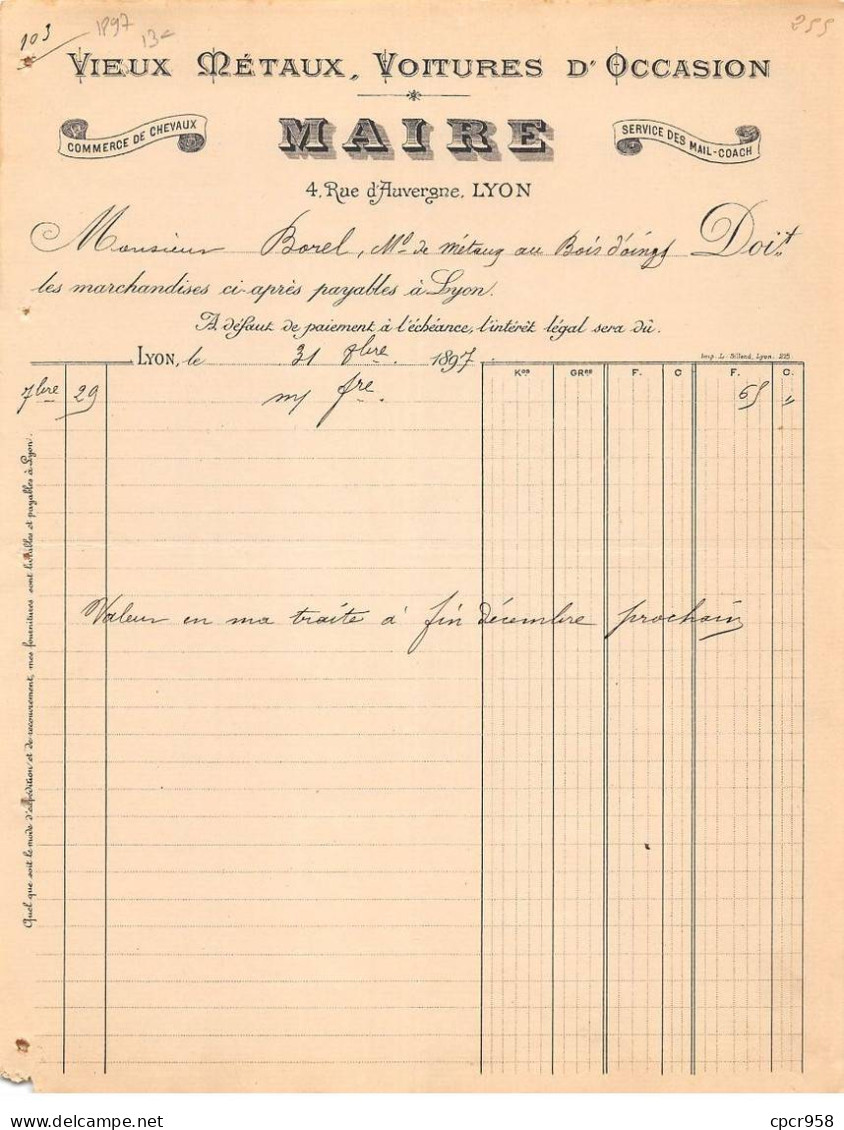 103
1897
13€
255
VIEUX MÉTAUX, VOITURES D'OCCASION
COMMERCE DE CHEVAUX
MAIRE
SERVICE DES MAIL-COACH
4, Rue d'Auvergne, LYON
Monsieur Borel, Md de métaux au Bois d'oingt Doit
les marchandises ci-après payables à Lyon.
A défaut de paiement à l'échéance, l'intérêt légal sera dû.
LYON, le 31 8bre 1897
Imp. L. Billend, Lyon. 215
Kos GRes F. C F. C.
7bre 29 m/ fre. 65 "
Valeur en ma traite à fin décembre prochain
Quel que soit le mode d'expédition et de recouvrement, mes fournitures sont livrables et payables à Lyon.
Delcampe.net
cpcr958